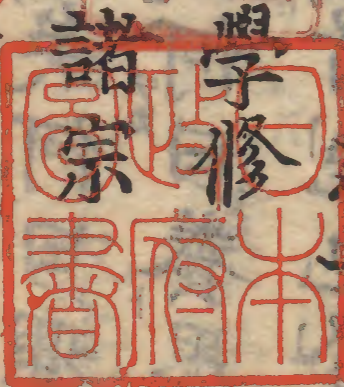 學修
諸宗
日本
政府
圖書